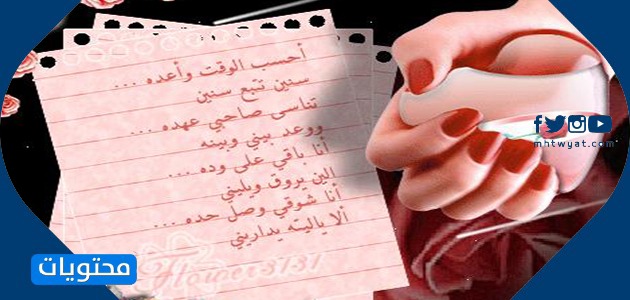 أحسب الوقت وأعده ...
سنين تتبع سنين
تناسى صاحبي عهده ...
ووعد بيني وبينه
أنا باقي على وده ...
الين يروق ويليني
أنا شوقي وصل حده ...
ألا ياليته يداريني
mhtwyat.com
محتويات